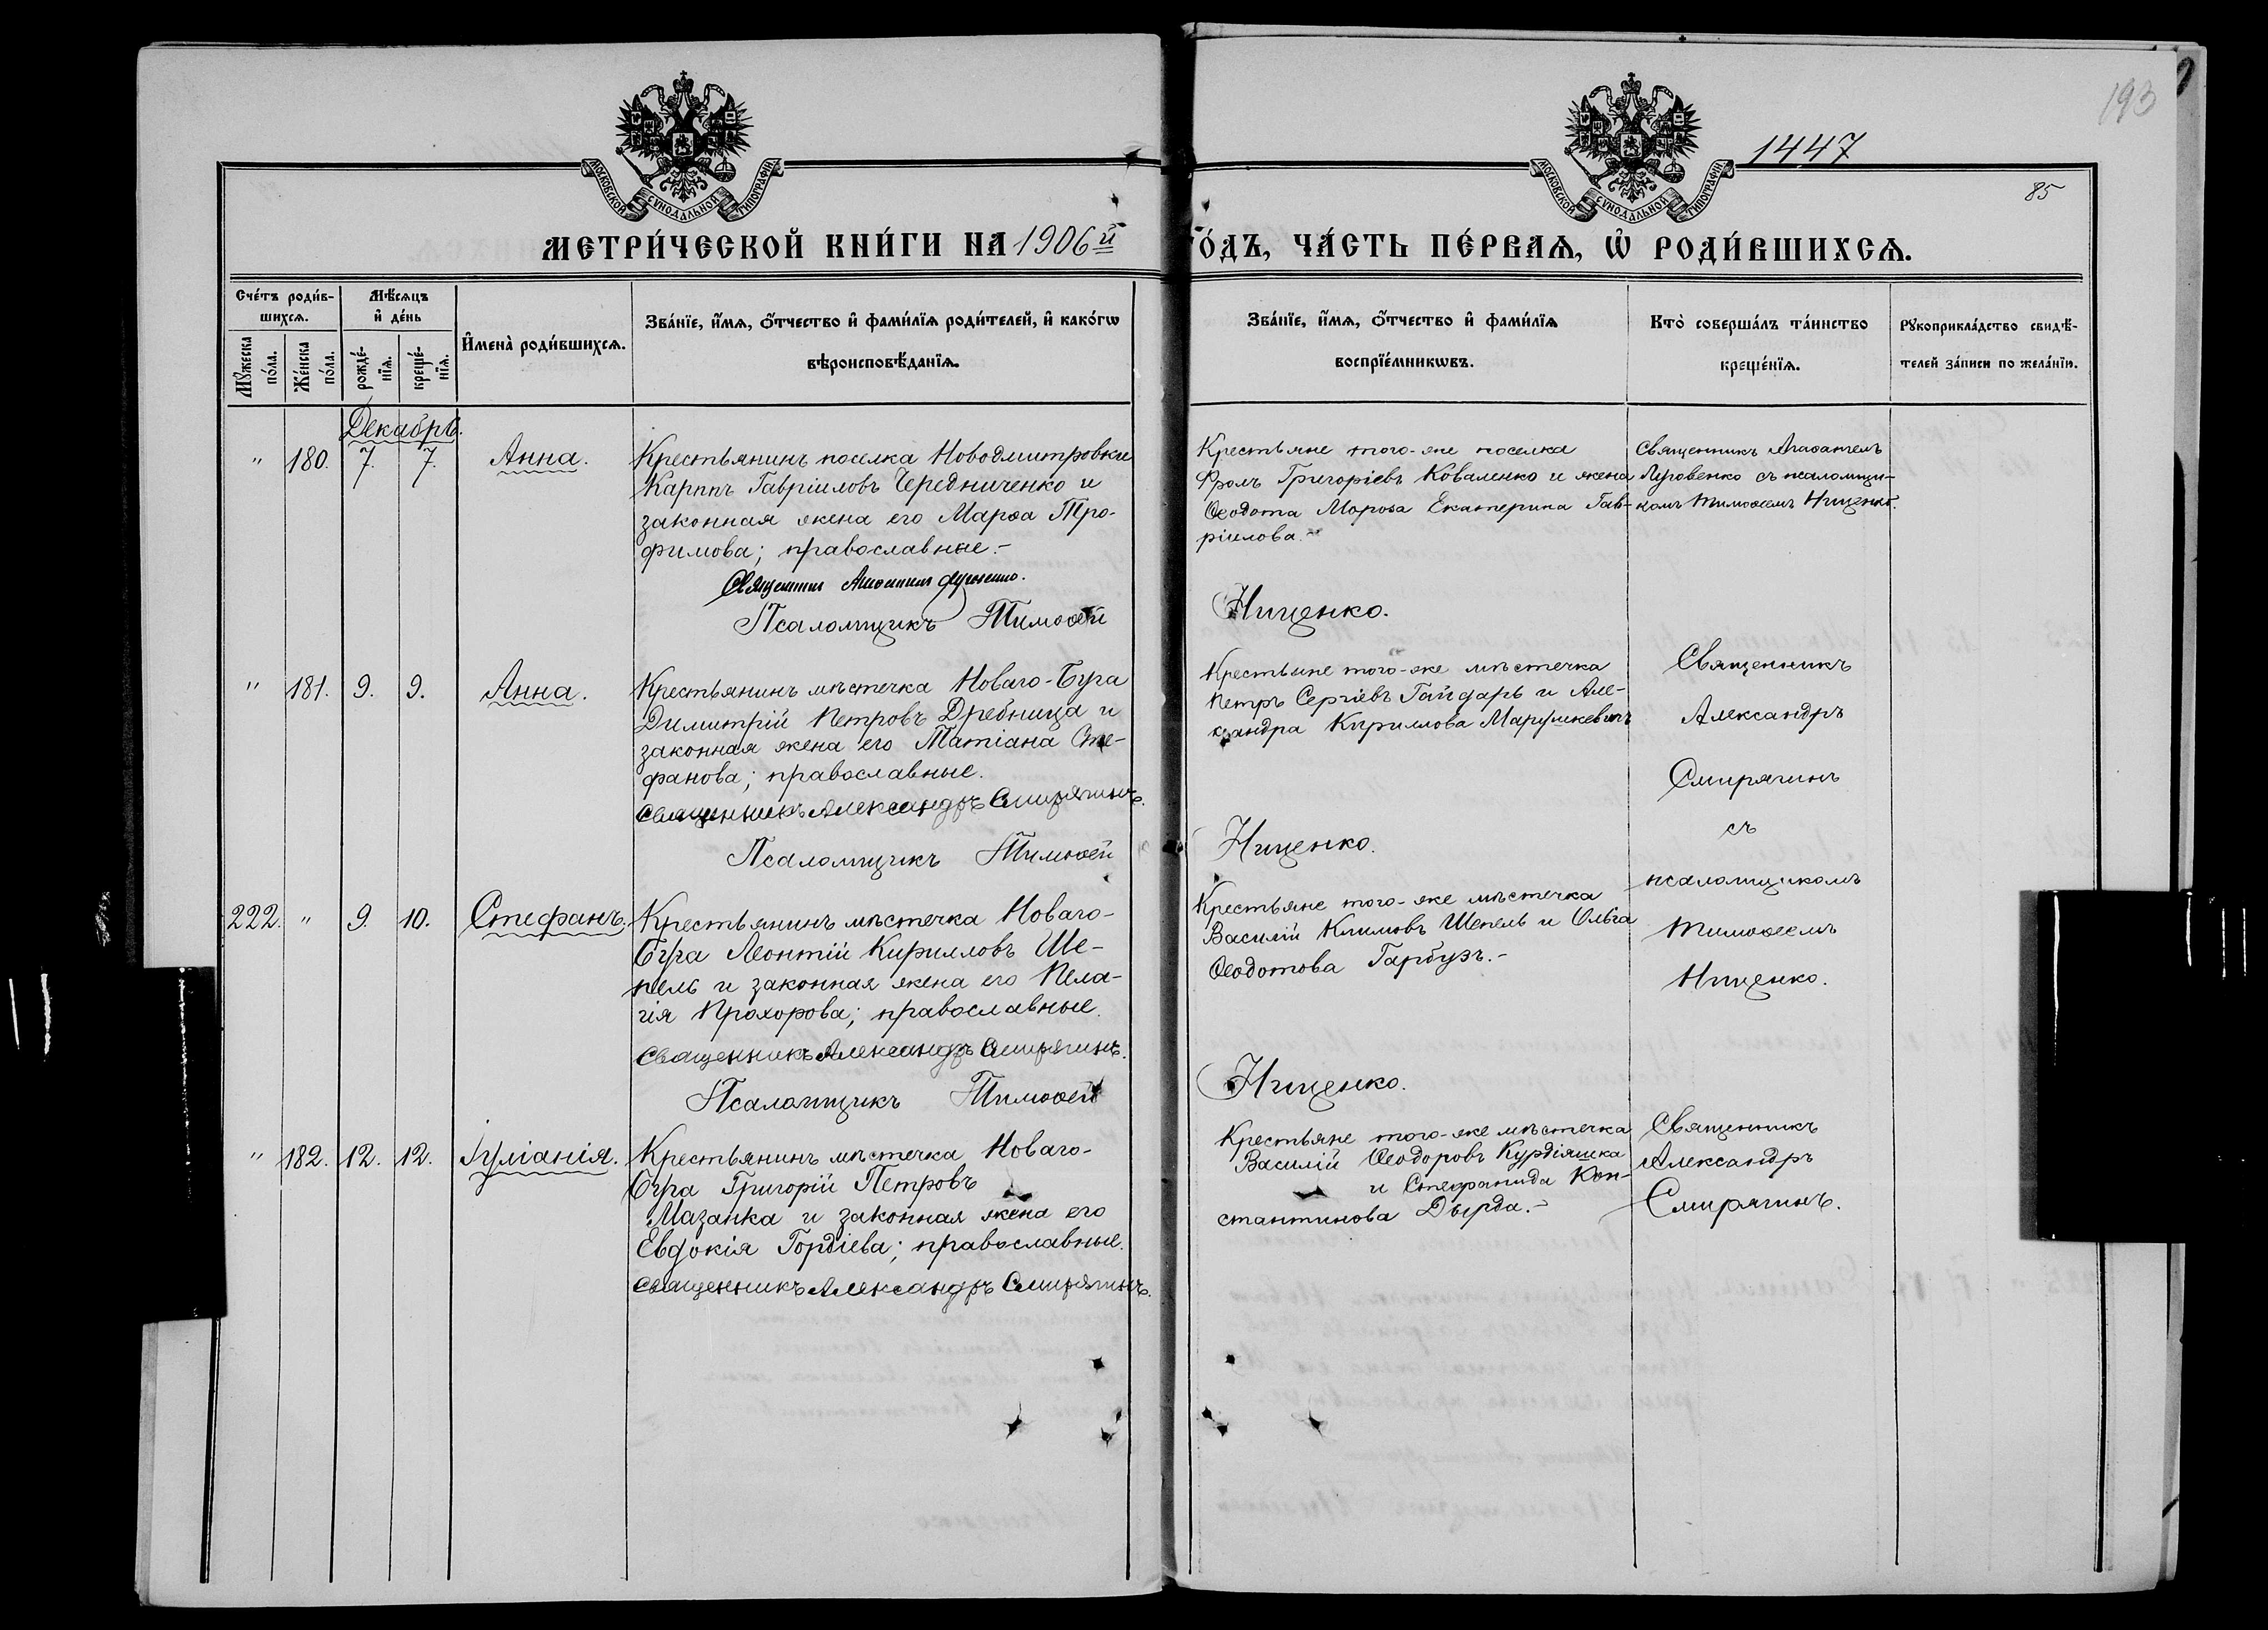 193
1447
85
МОСКОВСКОЙ СѴНОДАЛЬНОЙ ТИПОГРАФІИ
МОСКОВСКОЙ СѴНОДАЛЬНОЙ ТИПОГРАФІИ
МЕТРИ́ЧЕСКОЙ КНИ́ГИ НА 1906й
ГО́ДЪ, ЧА́СТЬ ПЕ́РВАѦ, Ѡ҆ РОДИ́ВШИХСѦ.
Сче́тъ роди́в-
шихсѧ.
Мꙋ́жеска по́ла.
Же́нска по́ла.
Мѣ́сѧцъ
и҆ де́нь
рожде́-нїѧ.
креще́-нїѧ.
И҆мена̀ роди́вшихсѧ.
Зва́нїе, и҆́мѧ, ѻ҆́тчество и҆ фами́лїѧ роди́телей, и҆ како́гѡ
вѣроисповѣ́данїѧ.
Зва́нїе, и҆́мѧ, ѻ҆́тчество и҆ фами́лїѧ
воспрїе́мникѡвъ.
Кто̀ соверша́лъ та́инство
креще́нїѧ.
Рꙋкоприкла́дство свидѣ́-
телей за́писи по жела́нїю.
Декабрь.
" 180. 7. 7. Анна.
Крестьянинъ поселка Новодмитровки
Карпъ Гавріиловъ Чередниченко и
законная жена его Марѳа Тро-
фимова; православные.-
Священникъ
Псаломщикъ Тимоѳей
Крестьяне того-же поселка
Фролъ Григоріевъ Коваленко и жена
Ѳеодота Мороза Екатерина Гав-
ріилова.-
Ниценко.
Священникъ Агаѳангелъ
Луговенко съ псаломщи-
комъ Тимоѳеемъ Ниценко.
" 181. 9. 9. Анна.
Крестьянинъ мѣстечка Новаго-Буга
Димитрій Петровъ Дребница и
законная жена его Татіана Сте-
фанова; православные.
Священникъ Александръ Смирягинъ.
Псаломщикъ Тимоѳей
Крестьяне того-же мѣстечка
Петръ Сергіевъ Гайдарь и Але-
ксандра Кириллова Марушкевичъ
Ниценко.
Священникъ
Александръ
Смирягинъ
съ
псаломщикомъ
Тимоѳеемъ
Ниценко.
222. " 9. 10. Стефанъ.
Крестьянинъ мѣстечка Новаго-
Буга Леонтій Кирилловъ Ше-
пель и законная жена его Пела-
гія Прохорова; православные.
Священникъ Александръ Смирягинъ.
Псаломщикъ Тимоѳей
Крестьяне того-же мѣстечка
Василій Климовъ Шепель и Ольга
Ѳеодотова Гарбузъ.-
Ниценко.
" 182. 12. 12. Іуліанія.
Крестьянинъ мѣстечка Новаго-
Буга Григорій Петровъ
Мазанка и законная жена его
Евдокія Гордіева; православные.
Священникъ Александръ Смирягинъ.
Крестьяне того-же мѣстечка
Василій Ѳеодоровъ Курдіяшка
и Стефанида Кон-
стантинова Дырда.-
Священникъ
Александръ
Смирягинъ.